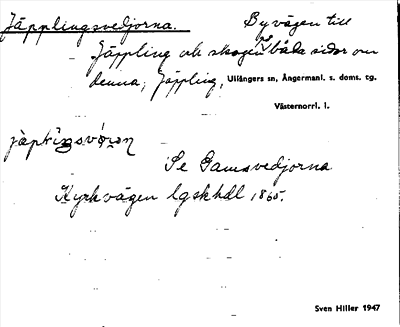 Jäpplingsvedjorna. Byvägen till
Jäppling och skogen på båda sidor om
denna, Jäppling, Ullångers sn, Ångermanl. s. doms. tg.
Västernorrl. l.
Se Gamsvedjorna
Kyrkvägen lgskhdl 1865.
Sven Hiller 1947